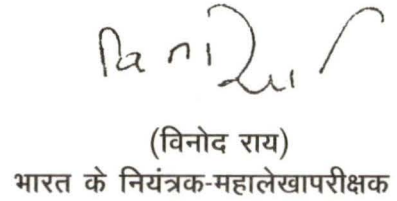 (विनोद राय)
भारत के नियंत्रक-महालेखापरीक्षक